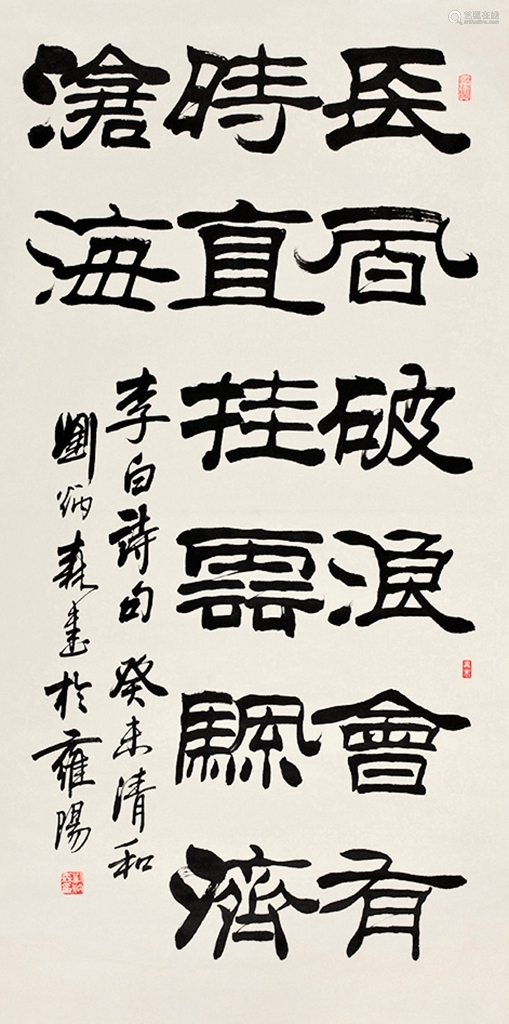 長風破浪會有
時直挂雲颿濟
滄海
李白詩句 癸未清和
劉炳森書於雍陽
艺狐在线